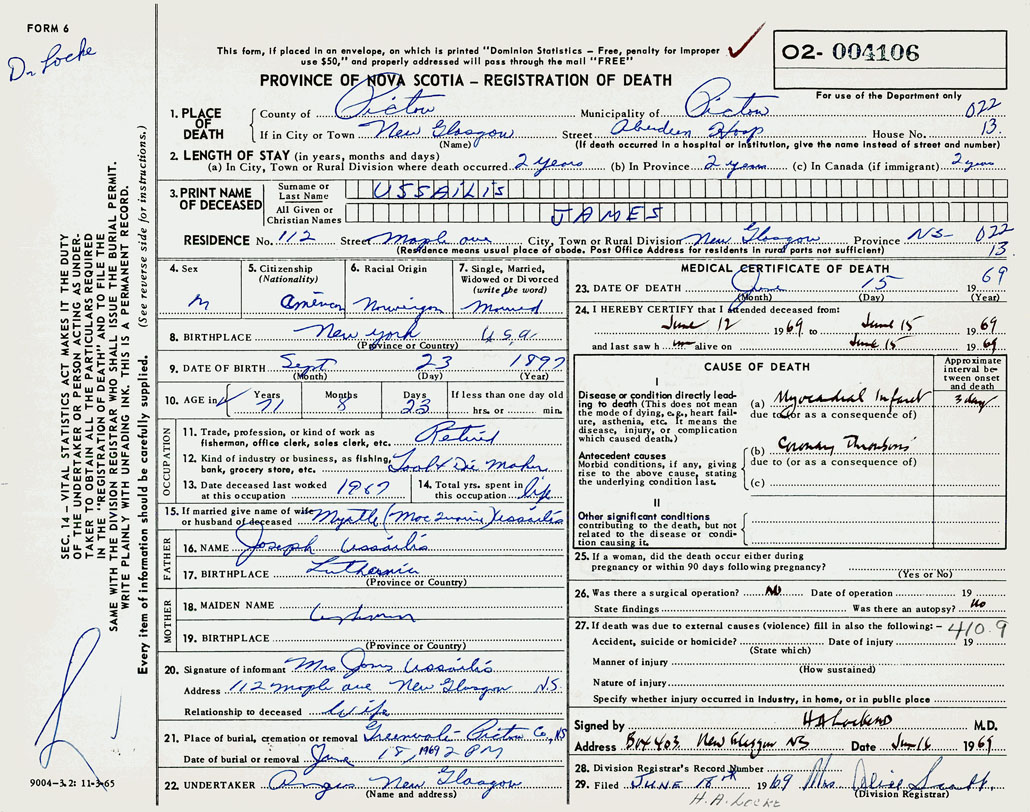 FORM 6
Dr Locke
This form, if placed in an envelope, on which is printed "Dominion Statistics – Free, penalty for improper
use $50," and properly addressed will pass through the mail "FREE"
O2- 004106
For use of the Department only
PROVINCE OF NOVA SCOTIA – REGISTRATION OF DEATH
1. PLACE OF DEATH
County of Pictou Municipality of Pictou 022
If in City or Town New Glasgow Street Aberdeen Hosp House No. 13.
(Name) (If death occurred in a hospital or institution, give the name instead of street and number)
2. LENGTH OF STAY (in years, months and days)
(a) In City, Town or Rural Division where death occurred 2 years (b) In Province 2 years (c) In Canada (if immigrant) 2 years
3. PRINT NAME OF DECEASED
Surname or Last Name USSAILIS
All Given or Christian Names JAMES
RESIDENCE No. 112 Street Maple ave City, Town or Rural Division New Glasgow Province NS- 022
(Residence means usual place of abode. Post Office Address for residents in rural parts not sufficient) 13
4. Sex M
5. Citizenship (Nationality)
6. Racial Origin
7. Single, Married, Widowed or Divorced (write the word)
8. BIRTHPLACE New York U.S.A
(Province or Country)
9. DATE OF BIRTH Sept 23 1897
(Month) (Day) (Year)
10. AGE in Years 71 Months 8 Days 23 If less than one day old
hrs. or min.
OCCUPATION
11. Trade, profession, or kind of work as
fisherman, office clerk, sales clerk, etc. Retired
12. Kind of industry or business, as fishing,
bank, grocery store, etc. Tool & Die Maker
13. Date deceased last worked
at this occupation 1967
14. Total yrs. spent in
this occupation life
15. If married give name of wife
or husband of deceased Myrtle Ussailis
FATHER
16. NAME Joseph Ussailis
17. BIRTHPLACE
(Province or Country)
MOTHER
18. MAIDEN NAME
19. BIRTHPLACE
(Province or Country)
20. Signature of informant Mrs James Ussailis
Address 112 Maple ave New Glasgow NS.
Relationship to deceased Wife
21. Place of burial, cremation or removal Pictou Co, NS
Date of burial or removal June 18, 1969 2 PM
22. UNDERTAKER Angus New Glasgow
(Name and address)
MEDICAL CERTIFICATE OF DEATH
23. DATE OF DEATH June 15 1969
(Month) (Day) (Year)
24. I HEREBY CERTIFY that I attended deceased from:
June 12 1969 to June 15 1969
and last saw h im alive on June 15 1969
CAUSE OF DEATH
Approximate interval between onset and death
I
Disease or condition directly leading to death (This does not mean the mode of dying, e.g., heart failure, asthenia, etc. It means the disease, injury, or complication which caused death.)
(a) Myocardial Infarct 3 days
due to (or as a consequence of)
Antecedent causes
Morbid conditions, if any, giving rise to the above cause, stating the underlying condition last.
(b) Coronary Thrombosis
due to (or as a consequence of)
(c)
II
Other significant conditions
contributing to the death, but not related to the disease or condition causing it.
25. If a woman, did the death occur either during
pregnancy or within 90 days following pregnancy?
(Yes or No)
26. Was there a surgical operation? No Date of operation 19
State findings Was there an autopsy? No
27. If death was due to external causes (violence) fill in also the following: – 410.9
Accident, suicide or homicide? Date of injury 19
(State which)
Manner of injury
(How sustained)
Nature of injury
Specify whether injury occurred in Industry, in home, or in public place
Signed by M.D.
Address Box 403 New Glasgow NS Date Jun 16 1969
28. Division Registrar's Record Number
29. Filed JUNE 18th 1969 Mrs. Alice
(Division Registrar)
H.A. LOCKE
SEC. 14 – VITAL STATISTICS ACT MAKES IT THE DUTY
OF THE UNDERTAKER OR PERSON ACTING AS UNDER-
TAKER TO OBTAIN ALL THE PARTICULARS REQUIRED
IN THE "REGISTRATION OF DEATH" AND TO FILE THE
SAME WITH THE DIVISION REGISTRAR WHO SHALL ISSUE THE BURIAL PERMIT.
WRITE PLAINLY WITH UNFADING INK. THIS IS A PERMANENT RECORD.
Every item of information should be carefully supplied. (See reverse side for instructions.)
9004-3.2: 11-3-65